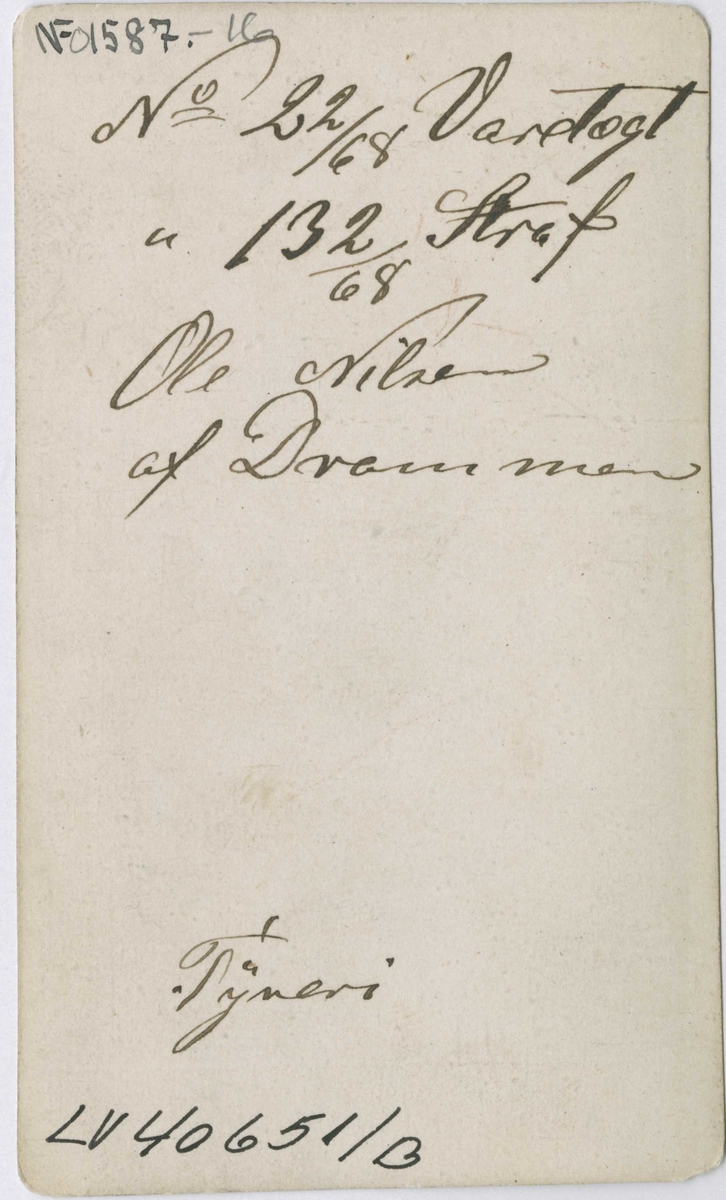 NF01587.-16
No 22/68 Vardtogt
" 132/68 Straf
Ole Nilsen
af Drammen
Tÿveri
LV40651/B